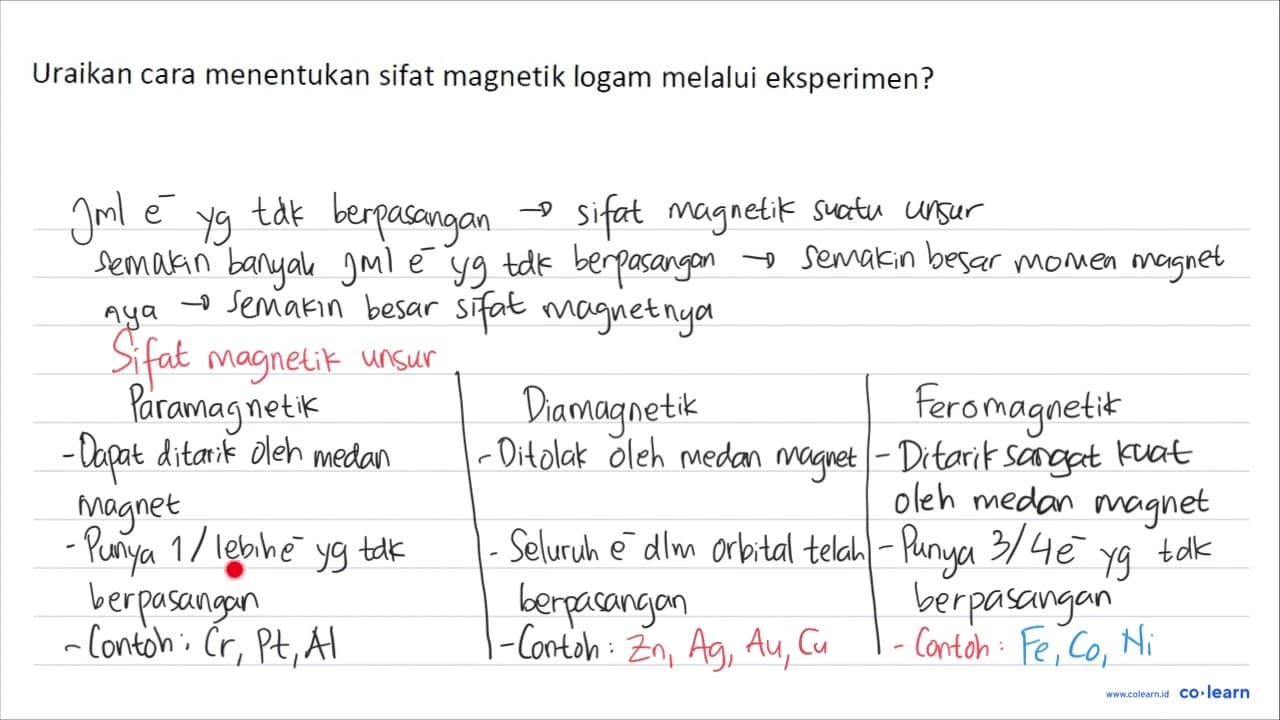 Uraikan cara menentukan sifat magnetik logam melalui eksperimen?
Jml e⁻ yg tdk berpasangan → sifat magnetik suatu unsur
semakin banyak jml e⁻ yg tdk berpasangan → semakin besar momen magnet
nya → semakin besar sifat magnetnya
Sifat magnetik unsur
Paramagnetik
- Dapat ditarik oleh medan
magnet
- Punya 1/lebih e⁻ yg tdk
berpasangan
- Contoh: Cr, Pt, Al
Diamagnetik
- Ditolak oleh medan magnet
- Seluruh e⁻ dlm orbital telah
berpasangan
- Contoh: Zn, Ag, Au, Cu
Feromagnetik
- Ditarik sangat kuat
oleh medan magnet
- Punya 3/4 e⁻ yg tdk
berpasangan
- Contoh: Fe, Co, Ni
www.colearn.id co·learn